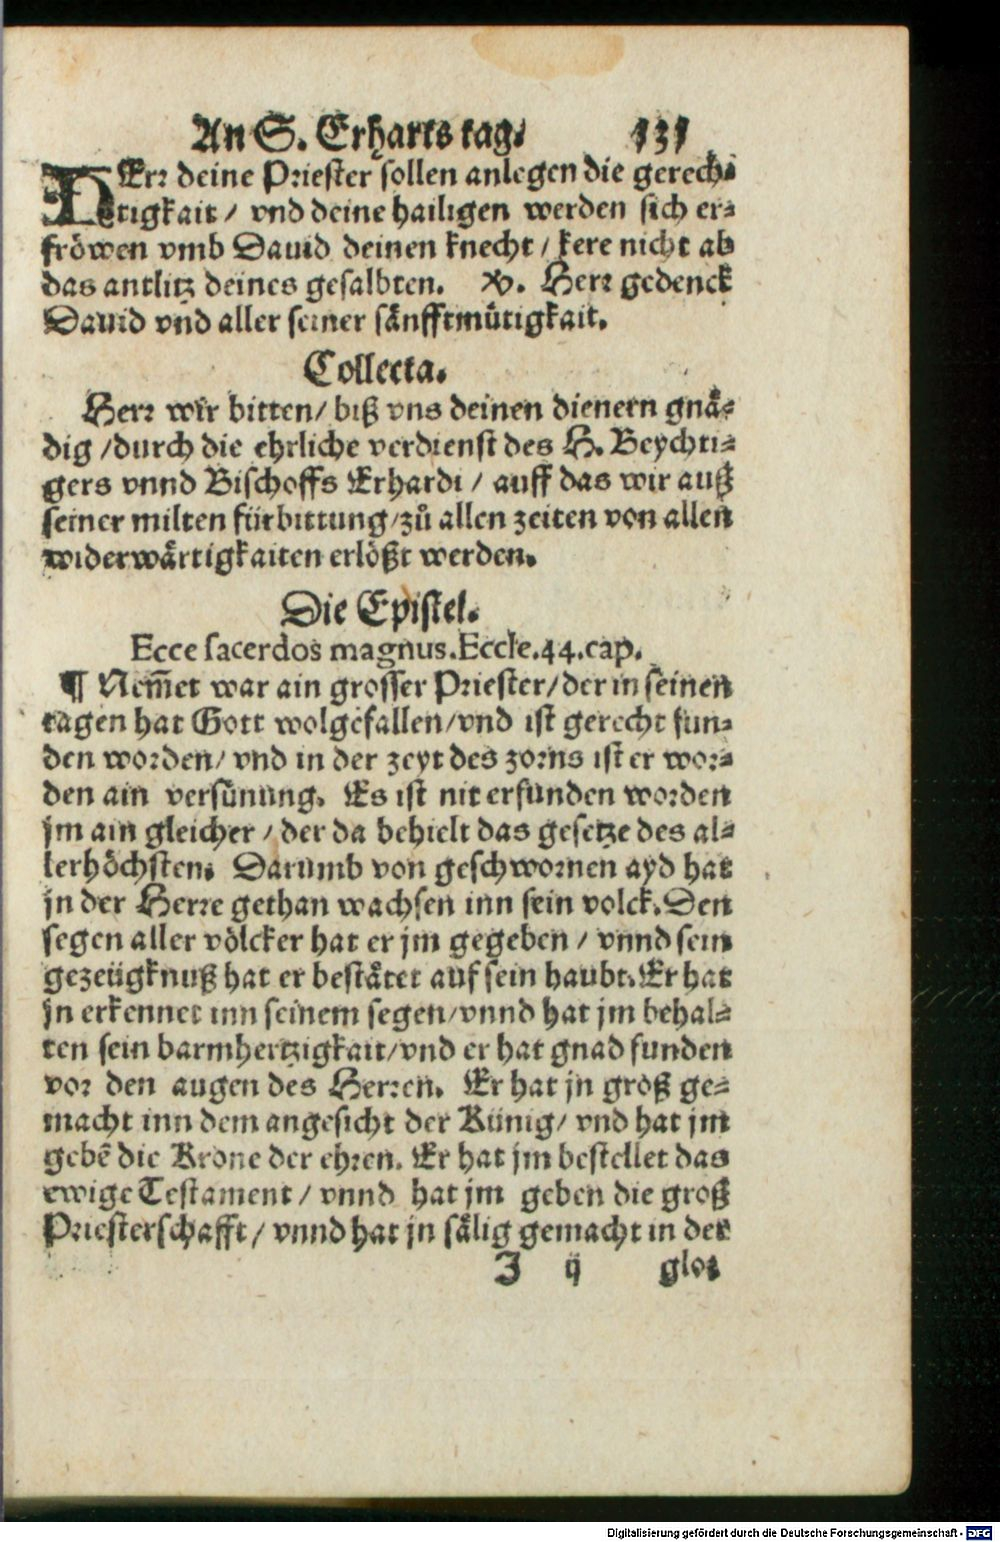 An S. Erharts tag. 131
HErr deine Priester sollen anlegen die gerech-
tigkait / vnd deine hailigen werden sich er-
fröwen vmb Dauid deinen knecht / kere nicht ab
das antlitz deines gesalbten. V. Herr gedenck
Dauid vnd aller seiner sänfftmůtigkait.
Collecta.
Herr wir bitten / biß vns deinen dienern gnä-
dig / durch die ehrliche verdienst des H. Beychti-
gers vnnd Bischoffs Erhardi / auff das wir auß
seiner milten fürbittung / zů allen zeiten von allen
widerwärtigkaiten erlößt werden.
Die Epistel.
Ecce sacerdos magnus. Eccle. 44. cap.
¶ Nem̅et war ain grosser Priester / der in seinen
tagen hat Gott wolgefallen / vnd ist gerecht fun-
den worden / vnd in der zeyt des zorns ist er wor-
den ain versünung. Es ist nit erfunden worden
jm ain gleicher / der da behielt das gesetze des al-
lerhöchsten. Darumb von geschwornen ayd hat
jn der Herre gethan wachsen inn sein volck. Den
segen aller völcker hat er jm gegeben / vnnd sein
gezeügknuß hat er bestätet auf sein haubt. Er hat
jn erkennet inn seinem segen / vnnd hat jm behal-
ten sein barmhertzigkait / vnd er hat gnad funden
vor den augen des Herren. Er hat jn groß ge-
macht inn dem angesicht der Künig / vnd hat jm
gebē die Krone der ehren. Er hat jm bestellet das
ewige Testament / vnnd hat jm geben die groß
Priesterschafft / vnnd hat jn sälig gemacht in der
J ij glor
Digitalisierung gefördert durch die Deutsche Forschungsgemeinschaft - DFG